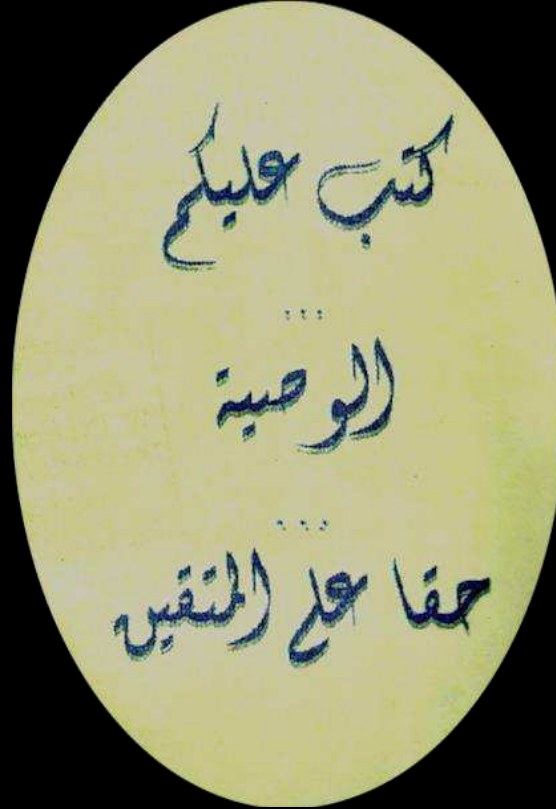 كتب عليكم
...
الوصية
...
حقا على المتقين